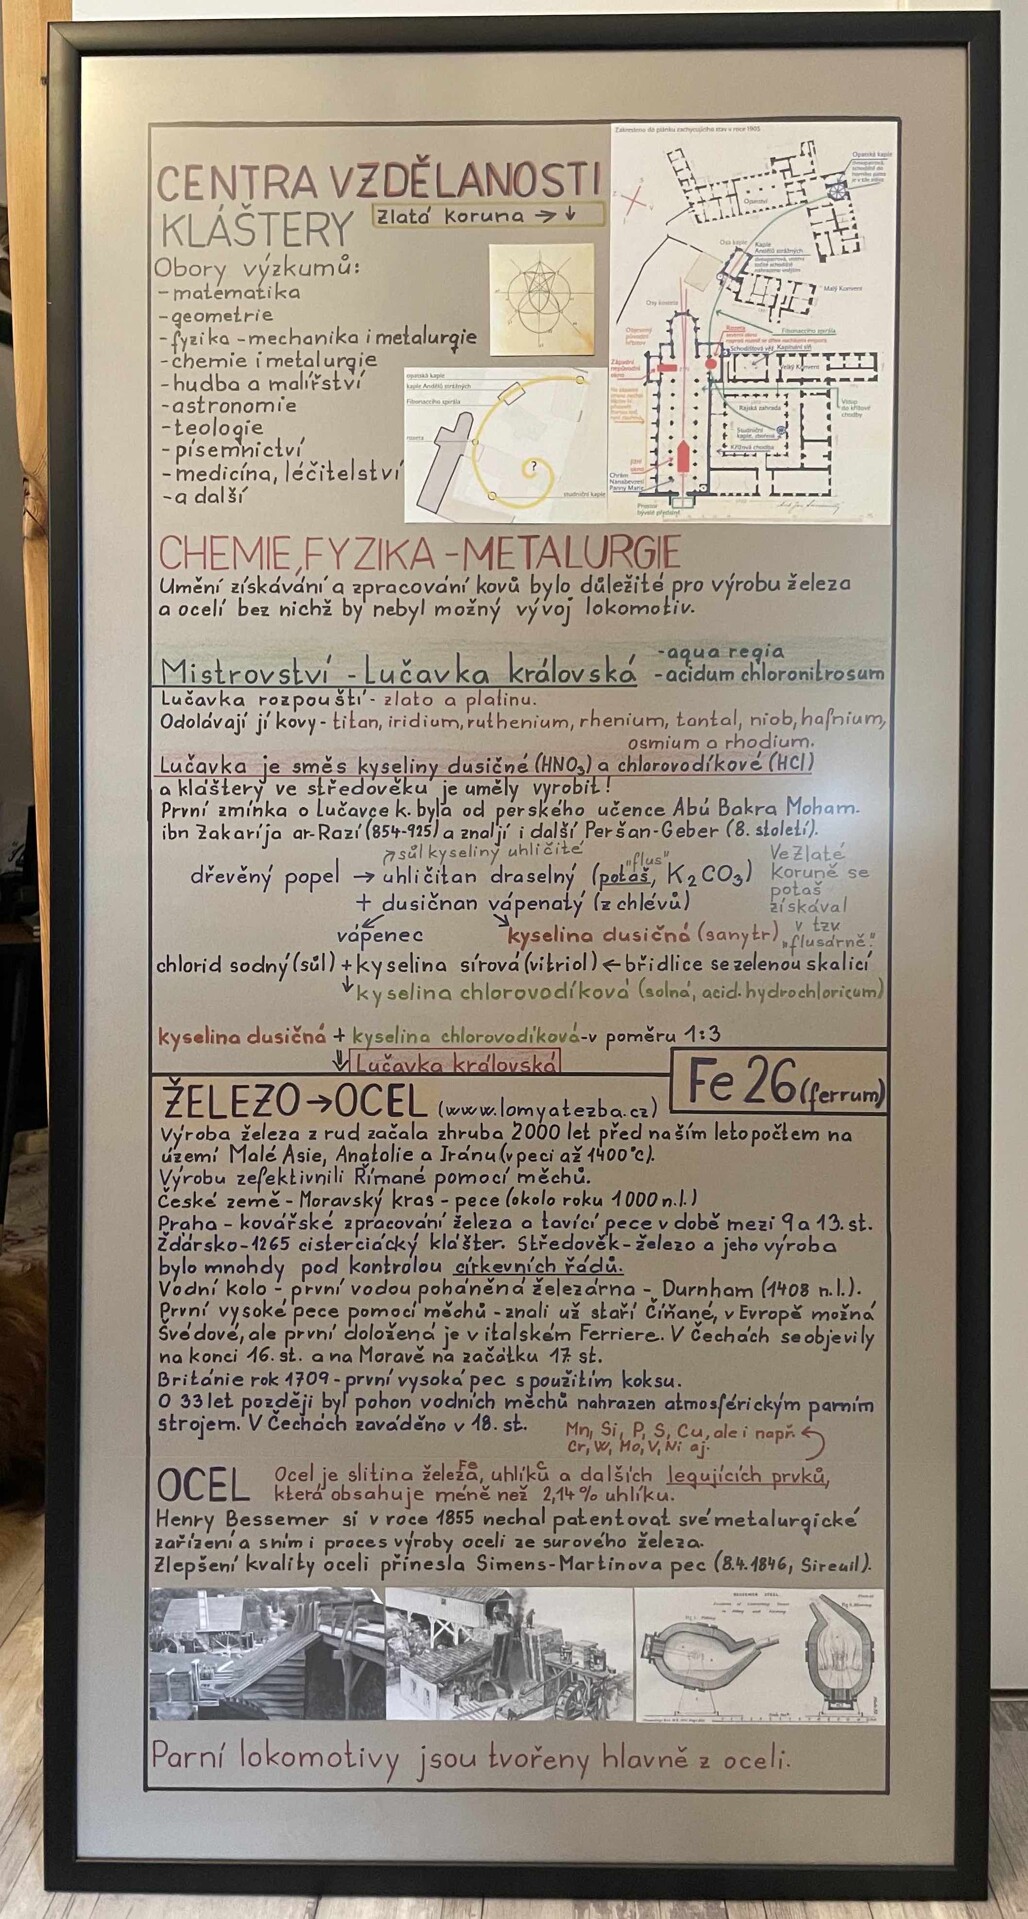 CENTRA VZDĚLANOSTI
KLÁŠTERY
Zlatá Koruna → ↓
Obory výzkumů:
-matematika
-geometrie
-fyzika -mechanika i metalurgie
-chemie i metalurgie
-hudba a malířství
-astronomie
-teologie
-písemnictví
-medicína, léčitelství
-a další
opatská kaple
kaple Andělů strážných
Fibonacciho spirála
rozeta
?
studniční kaple
Zakresleno do plánku zachycujícího stav v roce 1905
Opatská kaple
Opatství
Osa kaple
Kaple
Andělů strážných,
Malý Konvent
Osy kostela
Fibonacciho spirála
Rozeta
Schodišťová věž
Kapitulní síň
Velký Konvent
Západní
Rajská zahrada
Vstup
do křížové
chodby
Studniční
Křížová chodba
Chrám
Nanebevzetí
Panny Marie
Prostor
bývalé předsíně
CHEMIE, FYZIKA -METALURGIE
Umění získávání a zpracování kovů bylo důležité pro výrobu železa
a ocelí bez nichž by nebyl možný vývoj lokomotiv.
Mistrovství - Lučavka královská
-aqua regia
-acidum chloronitrosum
Lučavka rozpouští - zlato a platinu.
Odolávají jí kovy - titan, iridium, ruthenium, rhenium, tantal, niob, hafnium,
osmium a rhodium.
Lučavka je směs kyseliny dusičné (HNO₃) a chlorovodíkové (HCl)
a kláštery ve středověku je uměly vyrobit!
První zmínka o Lučavce k. byla od perského učence Abú Bakra Moham.
ibn Zakaríja ar-Razí (854-925) a znalj i další Peršan-Geber (8. století).
↗ sůl kyseliny uhličité
"flus"
dřevěný popel → uhličitan draselný (potaš, K₂CO₃)
Ve Zlaté
koruně se
potaš
získával
v tzv
„flusárně."
+ dusičnan vápenatý (z chlévů)
vápenec
kyselina dusičná (sanytr)
chlorid sodný (sůl) + kyselina sírová (vitriol) ← břidlice se zelenou skalicí
↓ kyselina chlorovodíková (solná, acid. hydrochloricum)
kyselina dusičná + kyselina chlorovodíková - v poměru 1:3
⇓ Lučavka královská
Fe 26 (ferrum)
ŽELEZO → OCEL (www.lomyatezba.cz)
Výroba železa z rud začala zhruba 2000 let před naším letopočtem na
území Malé Asie, Anatolie a Iránu (v peci až 1400°c).
Výrobu zefektivnili Římané pomocí měchů.
České země - Moravský kras - pece (okolo roku 1000 n.l.)
Praha - kovářské zpracování železa a tavící pece v době mezi 9 a 13. st.
Žďársko-1265 cisterciácký klášter. Středověk - železo a jeho výroba
bylo mnohdy pod kontrolou církevních řádů.
Vodní kolo - první vodou poháněná železárna - Durnham (1408 n.l.).
První vysoké pece pomocí měchů - znali už staří Číňané, v Evropě možná
Švédové, ale první doložená je v italském Ferriere. V Čechách se objevily
na konci 16. st. a na Moravě na začátku 17. st.
Británie rok 1709 - první vysoká pec s použitím koksu.
O 33 let později byl pohon vodních měchů nahrazen atmosférickým parním
strojem. V Čechách zaváděno v 18. st.
Mn, Si, P, S, Cu, ale i např.
Cr, W, Mo, V, Ni aj.
OCEL
Fe C
Ocel je slitina železa, uhlíku a dalších legujících prvků,
která obsahuje méně než 2,14% uhlíku.
Henry Bessemer si v roce 1855 nechal patentovat své metalurgické
zařízení a sním i proces výroby oceli ze surového železa.
Zlepšení kvality oceli přinesla Simens-Martinova pec (8.4.1846, Sireuil).
BESSEMER STEEL
Parní lokomotivy jsou tvořeny hlavně z oceli.